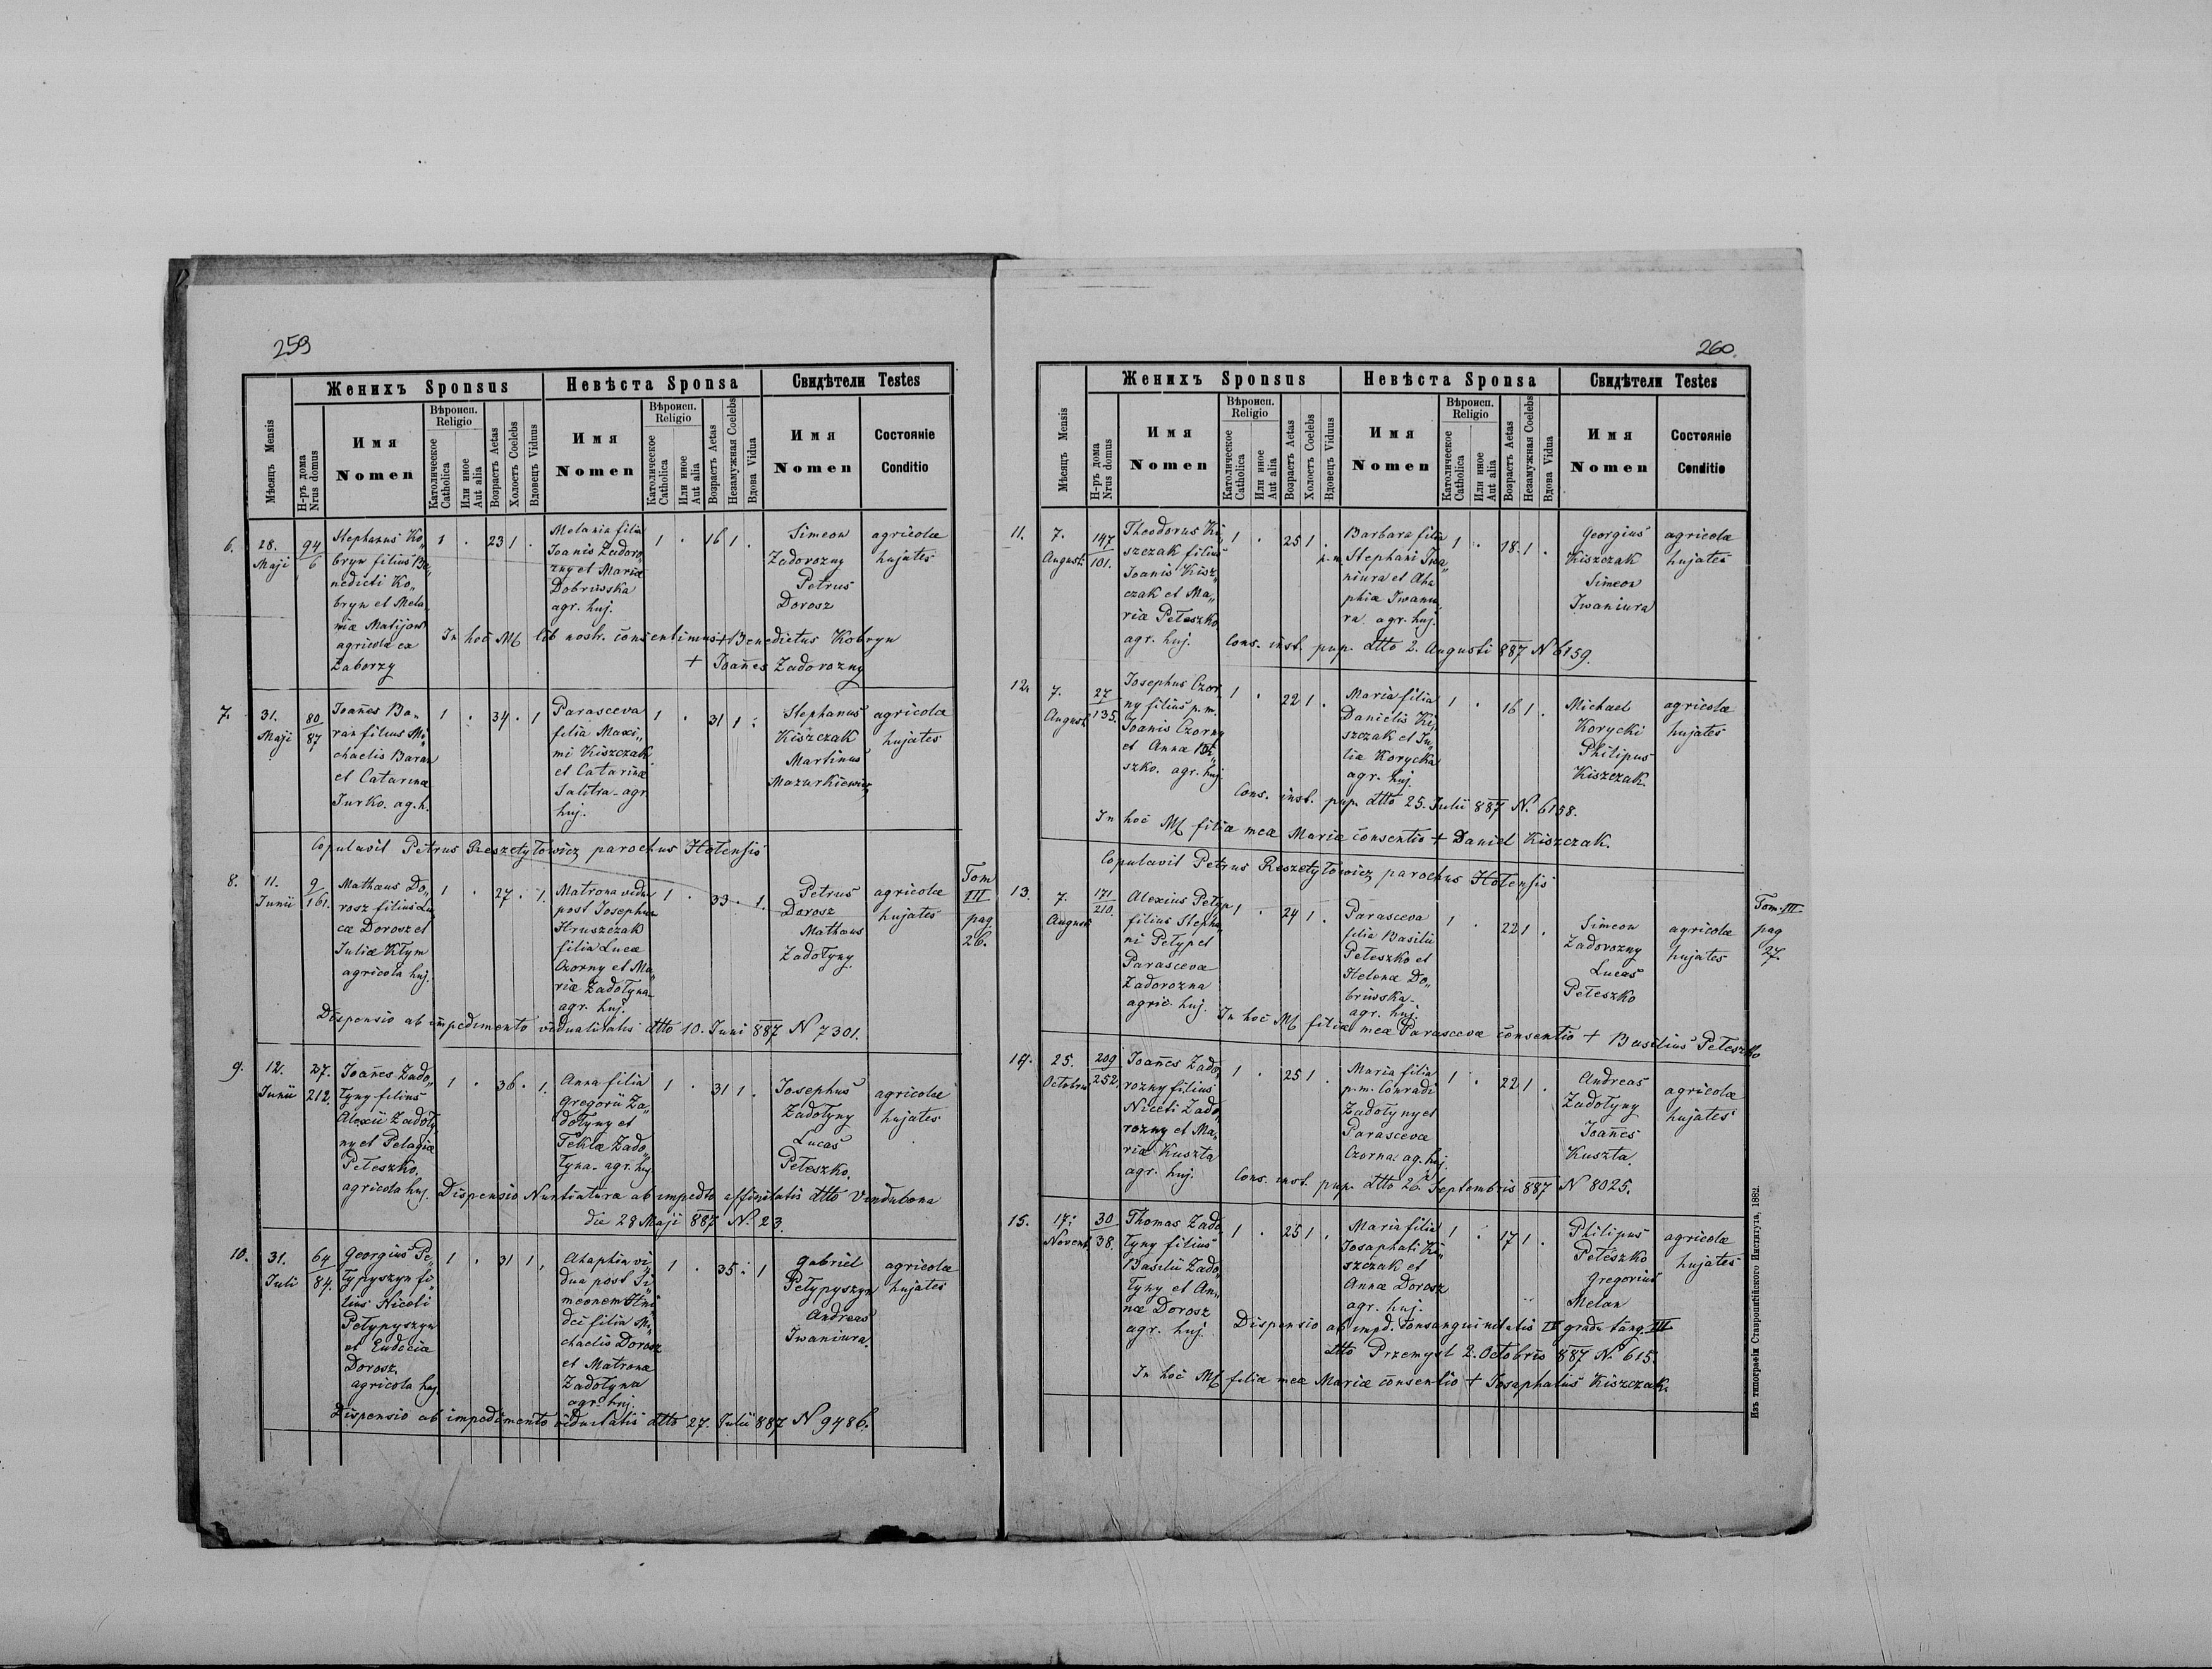 259
Женихъ Sponsus
Невѣста Sponsa
Свидѣтели Testes
Мѣсяцъ Mensis
Н-ръ дома Nrus domus
Имя Nomen
Вѣроисп. Religio
Католическое Catholica
Или иное Aut alia
Возрастъ Aetas
Холостъ Coelebs
Вдовецъ Viduus
Имя Nomen
Вѣроисп. Religio
Католическое Catholica
Или иное Aut alia
Возрастъ Aetas
Незамужная Coelebs
Вдова Vidua
Имя Nomen
Состояніе Conditio
6.
28. Maji
94/6
Stephanus Ko„
bryn filius Be„
nedicti Ko„
bryn et Mela„
niæ Matijow
agricola ex
Zaborzy
1 . 23 1 .
Melania filia
Ioanis Zadoro„
zny et Mariæ
Dobriwska
agr. huj.
1 . 16 1 .
Simeon
Zadorozny
Petrus
Dorosz
agricolæ
hujates
In hoc M lib nostr. consentimus + Benedictus Kobryn
+ Ioañes Zadorozny
7.
31. Maji
80/87
Ioañes Ba„
ran filius Mi„
chaelis Baran
et Catarinæ
Jurko. ag. h.
1 . 34 . 1
Parasceva
filia Maxi„
mi Kiszczak
et Catarinæ
Salitra - agr.
huj.
1 . 31 1 .
Stephanus
Kiszczak
Martinus
Mazurkiewicz
agricolæ
hujates
Copulavit Petrus Reszetyłowicz parochus Hołensis
8.
11. Junii
9/161.
Mathæus Do„
rosz filius Lu„
cæ Dorosz et
Juliæ Kłym
agricola huj.
1 . 27 . 1.
Matrona vidua
post Iosephum
Hruszczak
filia Lucæ
Czorny et Ma„
riæ Zadołyna
agr. huj.
1 . 33 . 1.
Petrus
Dorosz
Mathæus
Zadołyny
agricolæ
hujates
Tom
III
pag.
26.
Dispensio ab impedimento vidualitatis dtto 10. Juni 887 N 7301.
9.
12. Junii
27./212.
Ioañes Zado„
łyny filius
Alexii Zadoły„
ny et Pelagiæ
Peteszko.
agricola huj.
1 . 36 . 1.
Anna filia
Gregorii Za„
dołyny et
Teklæ Zado„
łyna - agr. huj
1 . 31 1 .
Josephus
Zadołyny
Lucas
Peteszko.
agricolæ
hujates
Dispensio Nuntiatura ab impedto affinitatis dtto Vindubona
die 28 Maji 887 N. 23.
10.
31. Julii
64/84.
Georgius Pe„
typyszyn fi„
lius Niceti
Petypyszyn
et Eudociæ
Dorosz.
agricola huj.
1 . 31 1 .
Ahaphia vi„
dua post Si„
meonem
filia Mi„
chaelis Dorosz
et Matronæ
Zadołyna
agr. huj.
1 . 35 . 1
Gabriel
Petypyszyn
Andreas
Iwaniura.
agricolæ
hujates
Dispensio ab impedimento viduitatis dtto 27. Julii 887 N 9486.
260.
Женихъ Sponsus
Невѣста Sponsa
Свидѣтели Testes
Мѣсяцъ Mensis
Н-ръ дома Nrus domus
Имя Nomen
Вѣроисп. Religio
Католическое Catholica
Или иное Aut alia
Возрастъ Aetas
Холостъ Coelebs
Вдовецъ Viduus
Имя Nomen
Вѣроисп. Religio
Католическое Catholica
Или иное Aut alia
Возрастъ Aetas
Незамужная Coelebs
Вдова Vidua
Имя Nomen
Состояніе Conditio
11.
7. August.
147/101.
Theodorus Ki„
szczak filius
Ioanis Kisz„
czak et Ma„
riæ Peteszko
agr. huj.
1 . 25 1 .
Barbara filia
p.m. Stephani Iwa„
niura et Aha
phiæ Iwaniu„
ra. agr. huj.
1 . 18. 1 .
Georgius
Kiszczak
Simeon
Iwaniura
agricolæ
hujates
Cons. inst. pup. dtto 2. Augusti 887 N 6159.
12.
7. August.
27/135.
Iosephus Czor„
ny filius p.m.
Ioanis Czorny
et Annæ
szko. agr. huj.
1 . 22 1 .
Maria filia
Danielis Ki„
szczak et Ju„
liæ Korycka
agr. huj.
1 . 16 1 .
Michael
Korycki
Philipus
Kiszczak.
agricolæ
hujates
Cons. inst. pup. dtto 25. Julii 887 N. 6158.
In hoc M filiæ meæ Mariæ consentio + Daniel Kiszczak.
Copulavit Petrus Reszetyłowicz parochus Hołensis
13.
7. August
171/210.
Alexius Petyp
filius Stepha„
ni Petyp et
Parascevæ
Zadorozna
agric. huj.
1 . 24 1 .
Parasceva
filia Basilii
Peteszko et
Helenæ Do„
briwska -
agr. huj.
1 . 22 1 .
Simeon
Zadorozny
Lucas
Peteszko
agricolæ
hujates
Tom. III.
pag
27.
In hoc M filiæ meæ Parascevæ consentio + Basilius Peteszko
14.
25. Octobris
209/252.
Ioañes Zado„
rozny filius
Niceti Zado„
rozny et Ma„
riæ Kuszta
agr. huj.
1 . 25 1 .
Maria filia
p.m. Conradi
Zadołyny et
Parascevæ
Czorna. ag. huj.
1 . 22 1 .
Andreas
Zadołyny
Ioañes
Kuszta.
agricolæ
hujates
Cons. inst. pup. dtto 26 Septembris 887 N 8025.
15.
17. Novemb
30/38.
Thomas Zado„
łyny filius
Basilii Zado„
łyny et An„
næ Dorosz
agr. huj.
1 . 25 1 .
Maria filia
Josaphati Ki„
szczak et
Annæ Dorosz
agr. huj.
1 . 17 1 .
Philipus
Peteszko
Gregorius
Melan
agricolæ
hujates
Dispensio ab impd. consanguinitatis IV gradu tang. III
dtto Przemysl 2. Octobris 887 N. 615.
In hoc M filiæ meæ Mariæ consentio + Josaphatus Kiszczak.
Изъ типографіи Ставропигійского Института, 1882.